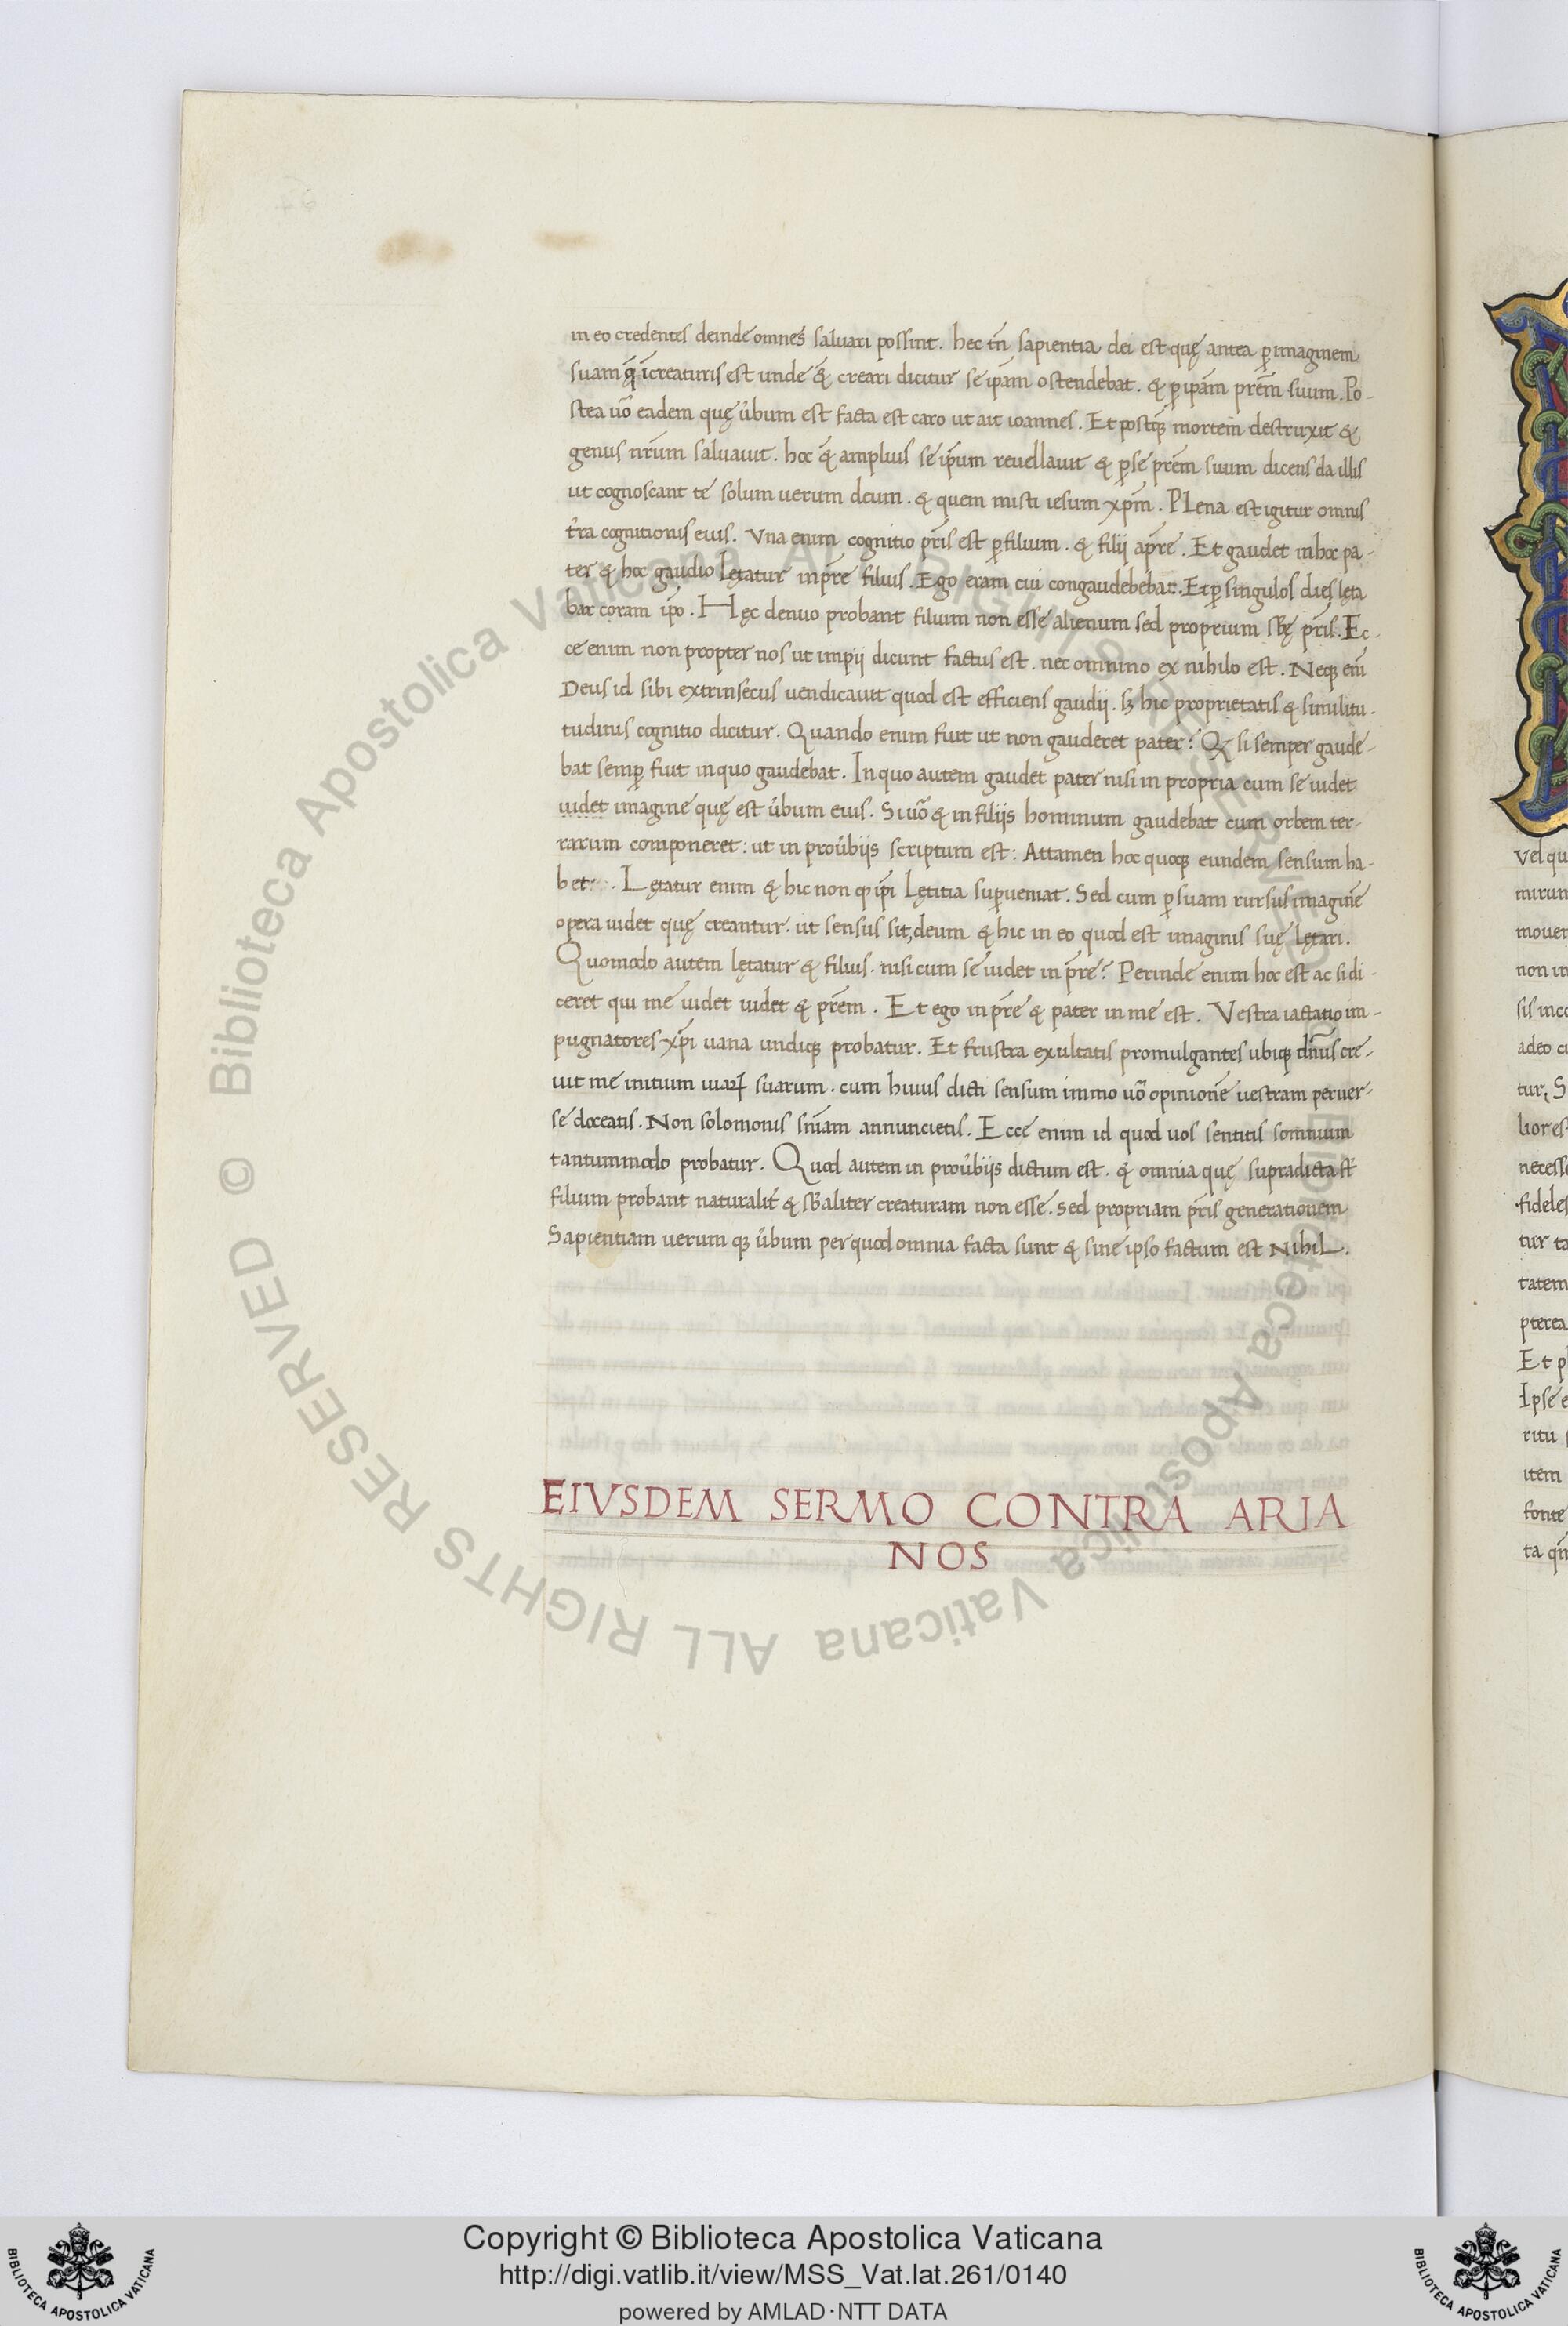 in eo credentes deinde omnes saluari possint. hec tn̄ sapientia dei est quę antea ꝑ imaginem
suam q̄ ī creaturis est unde & creari dicitur se ip̄am ostendebat. & ꝑ ip̄am pr̄em suum. Po-
stea uō eadem quę u̓bum est facta est caro ut ait ioannes. Et postq̄ mortem destruxit &
genus nr̄um saluauit. hoc & amplius se ip̄um reuellauit & ꝑ se pr̄em suum dicens da illis
ut cognoscant te solum uerum deum. & quem misti iesum xp̄m. PLena est igitur omnis
t̓ra cognitionis eius. Vna enim cognitio pr̄is est ꝑ filium. & filij a pr̄e. Et gaudet in hoc pa-
ter & hoc gaudio lętatur in pr̄e filius. Ego eram cui congaudebebat. Et ꝑ singulos dies lęta
bar coram ip̄o. Hęc denuo probant filium non esse alienum sed proprium sb̄ę pr̄is. Ec-
ce enim non propter nos ut impij dicunt factus est. nec omnino ex nihilo est. Neqꝫ eni̅
Deus id sibi extrinsecus uendicauit quod est efficiens gaudij. sꝫ hic proprietatis & similitu-
tudinis cognitio dicitur. Quando enim fuit ut non gauderet pater? Q̇ si semper gaude-
bat semꝑ fuit in quo gaudebat. In quo autem gaudet pater nisi in propria cum se uidet
uidet imagine quę est u̓bum eius. Si uō & in filijs hominum gaudebat cum orbem ter-
rarum componeret: ut in prou̓bijs scriptum est: Attamen hoc quoqꝫ eundem sensum ha-
bet. Lętatur enim & hic non ꝙ ip̄i lętitia suꝑueniat. Sed cum ꝑ suam rursus imaginē
opera uidet quę creantur. ut sensus sit, deum & hic in eo quod est imaginis suę lętari.
Quomodo autem lętatur & filius. nisi cum se uidet in pr̄e? Perinde enim hoc est ac si di-
ceret qui me uidet uidet & pr̄em. Et ego in pr̄e & pater in me est. Vestra iactatio im-
pugnatores xp̄i uana undiqꝫ probatur. Et frustra exultatis promulgantes ubiqꝫ dn̄us cre-
uit me initium uiaꝝ suarum. cum huius dicti sensum immo uō opinionē uestram peruer-
se doceatis. Non solomonis sn̄iam annuncietis. Ecce enim id quod uos sentitis somnium
tantummodo probatur. Quod autem in prou̓bijs dictum est. & omnia quę supradicta st̄
filium probant naturalit̓ & sb̄aliter creaturam non esse. sed propriam pr̄is generationem
Sapientiam uerum qꝫ u̓bum per quod omnia facta sunt & sine ipso factum est NihiL.
EIVSDEM SERMO CONTRA ARIA
NOS
Vel qu
mirun
mouer
non in
sis inco
adeo
tur, S
liores
necesse
fideles
tur ta
tatem
pterea
Et p
Ipse e
ritu
item
fonte
ta qn̄
© Biblioteca Apostolica Vaticana ALL RIGHTS RESERVED
© Biblioteca Apostolica Vaticana ALL RIGHTS RESERVED
BIBLIOTECA APOSTOLICA VATICANA
Copyright © Biblioteca Apostolica Vaticana
http://digi.vatlib.it/view/MSS_Vat.lat.261/0140
powered by AMLAD·NTT DATA
BIBLIOTECA APOSTOLICA VATICANA